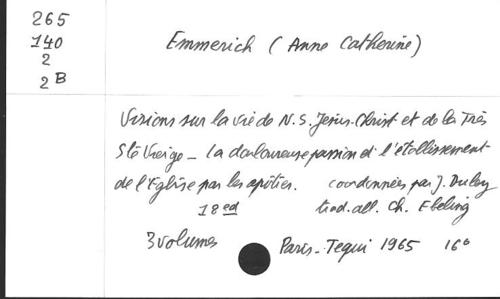 265
140
2
2B
Emmerich (Anne Catherine)
Visions sur la vie de N.S. Jésus-Christ et de la Très
Ste Vierge - la douloureuse passion et l'établissement
de l'Eglise par les apôtres. coordonnées par J. Duley
18 ed trad. all. Ch. Ebeling
3 volumes Paris-Tequi 1965 16°